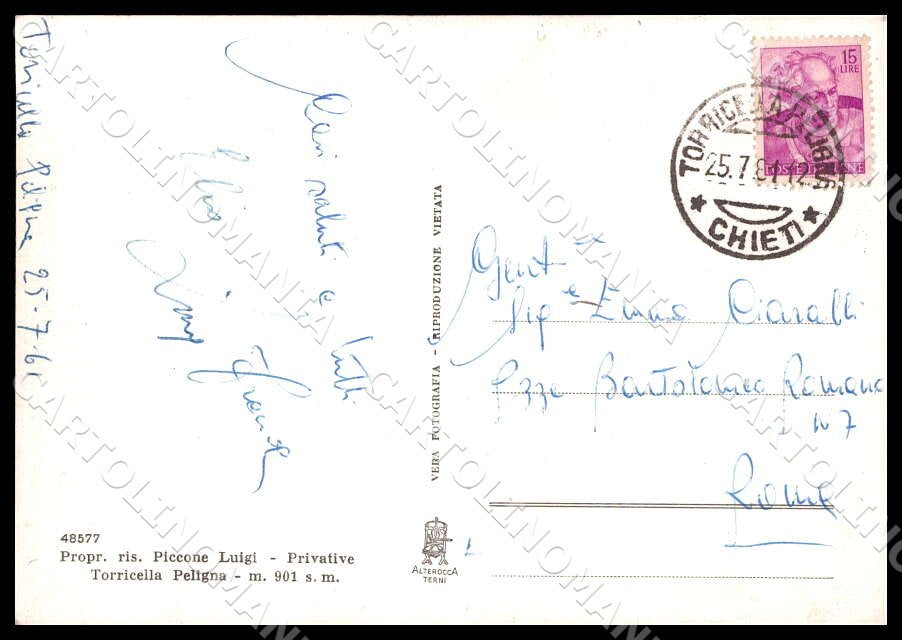 Torricella Peligna 25-7-61
Cari saluti a tutti
48577
Propr. ris. Piccone Luigi - Privative
Torricella Peligna - m. 901 s. m.
VERA FOTOGRAFIA - RIPRODUZIONE VIETATA
ALTEROCCA
TERNI
15
LIRE
POSTE ITALIANE
TORRICELLA PELIGNA
25.7.61.12
CHIETI
Gent
Sig Emma Ciaralli
Pzze Bartolomeo Romano
N 7
Roma
CARTOLINOMANIA